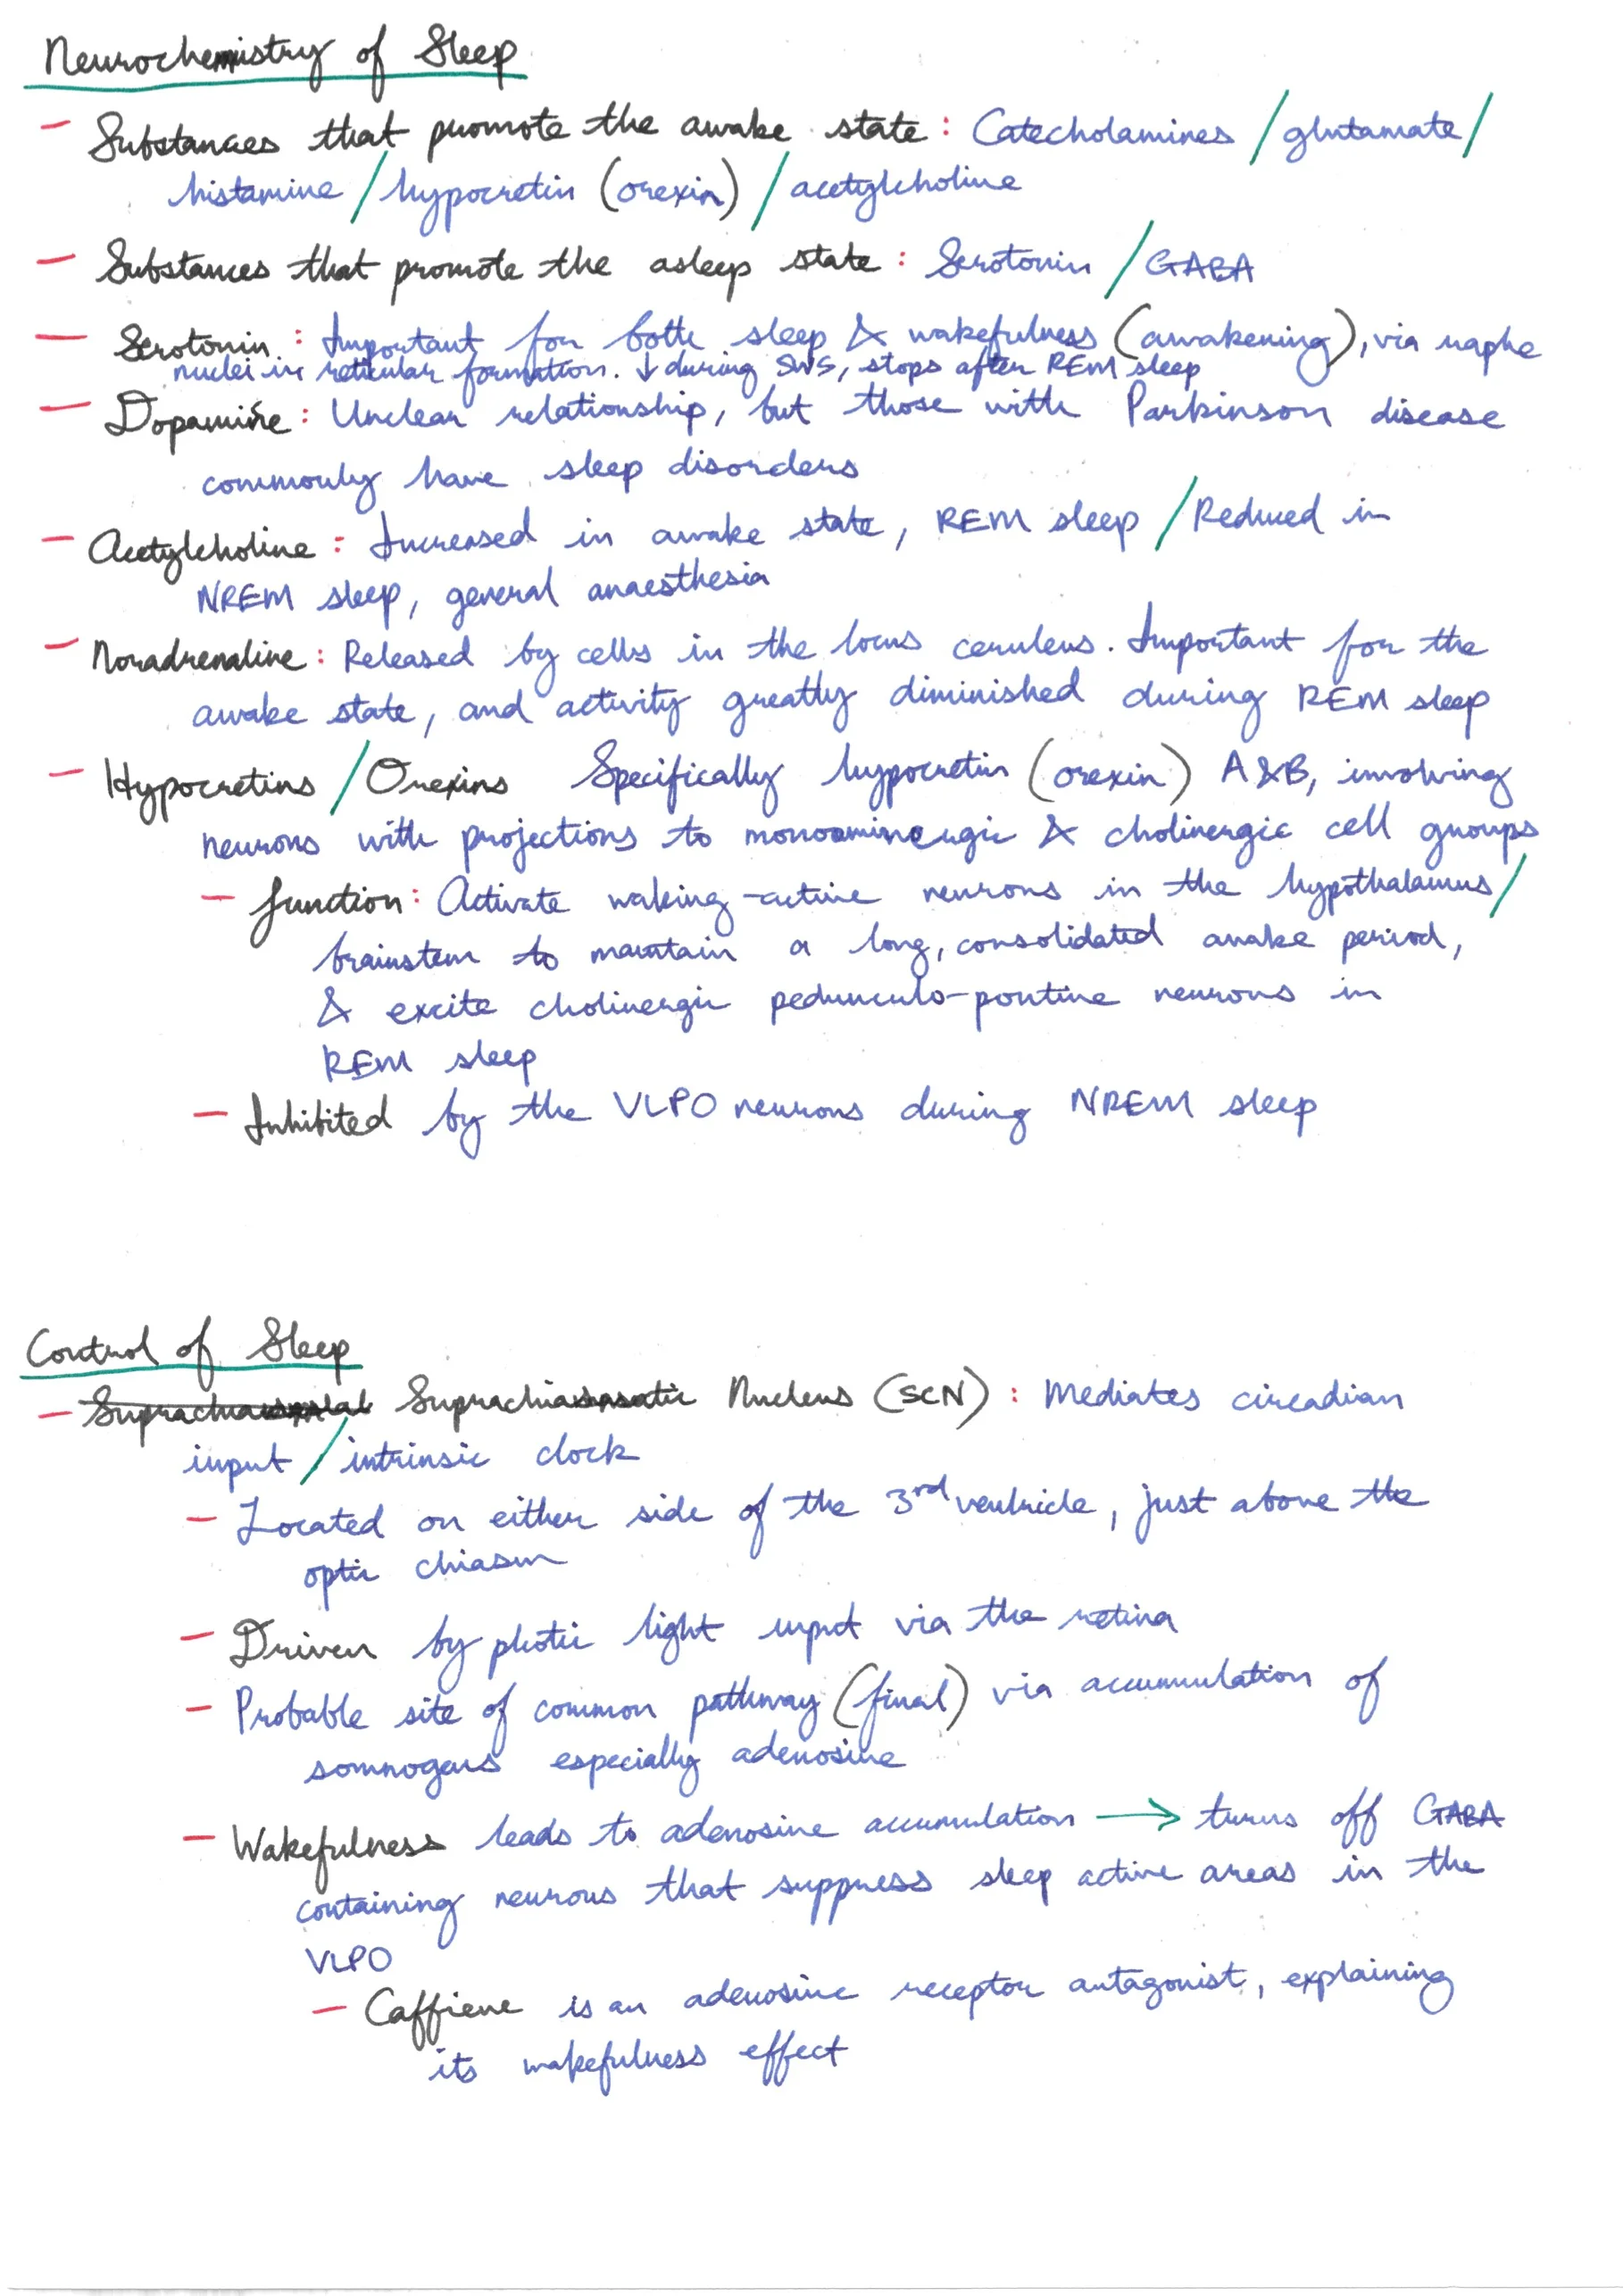 Neurochemistry of Sleep
- Substances that promote the awake state: Catecholamines / glutamate /
histamine / hypocretin (orexin) / acetylcholine
- Substances that promote the asleep state: Serotonin / GABA
- Serotonin: Important for both sleep & wakefulness (awakening), via raphe
nuclei in reticular formation. ↓ during SWS, stops after REM sleep
- Dopamine: Unclear relationship, but those with Parkinson disease
commonly have sleep disorders
- Acetylcholine: Increased in awake state, REM sleep / Reduced in
NREM sleep, general anaesthesia
- Noradrenaline: Released by cells in the locus ceruleus. Important for the
awake state, and activity greatly diminished during REM sleep
- Hypocretins / Orexins Specifically hypocretin (orexin) A&B, involving
neurons with projections to monoaminergic & cholinergic cell groups
- Function: Activate waking-active neurons in the hypothalamus /
brainstem to maintain a long, consolidated awake period,
& excite cholinergic pedunculo-pontine neurons in
REM sleep
- Inhibited by the VLPO neurons during NREM sleep
Control of Sleep
- Suprachiasmatic Nucleus (SCN): Mediates circadian
input / intrinsic clock
- Located on either side of the 3rd ventricle, just above the
optic chiasm
- Driven by photic light input via the retina
- Probable site of common pathway (final) via accumulation of
somnogens especially adenosine
- Wakefulness leads to adenosine accumulation → turns off GABA
containing neurons that suppress sleep active areas in the
VLPO
- Caffiene is an adenosine receptor antagonist, explaining
its wakefulness effect